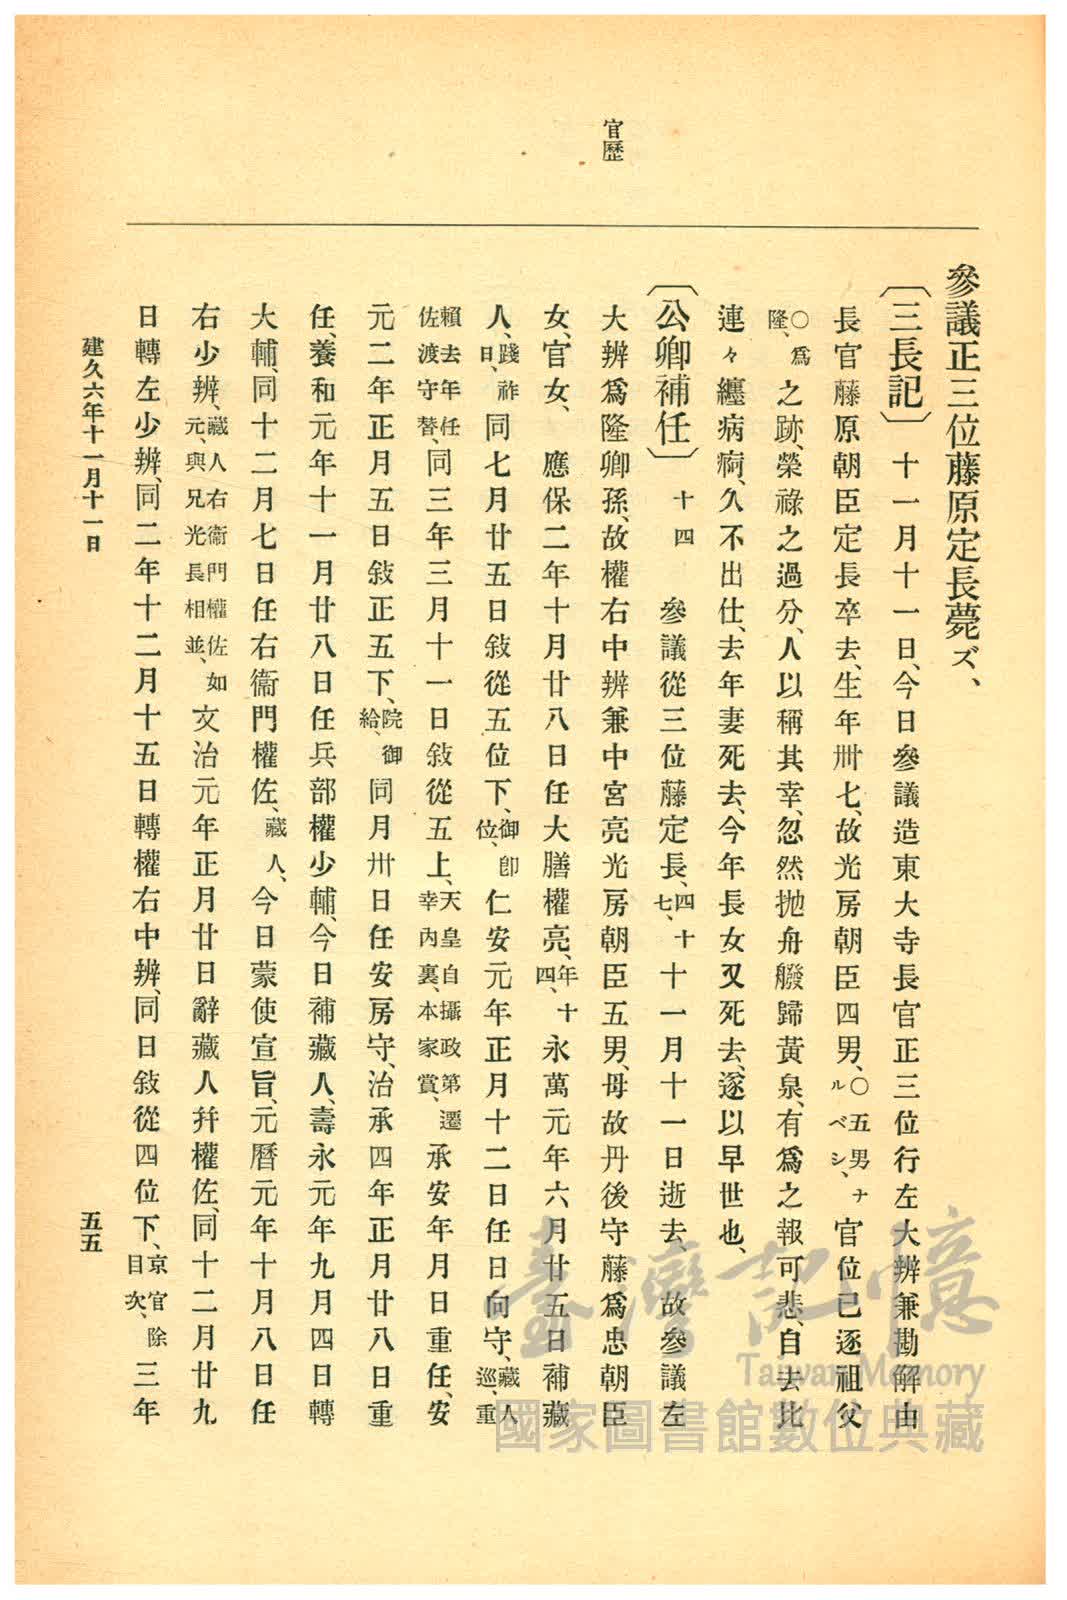 官歷
參議正三位藤原定長薨ズ、
〔三長記〕十一月十一日、今日參議造東大寺長官正三位行左大辨兼勘解由
長官藤原朝臣定長卒去、生年卌七、故光房朝臣四男、○五男ナルベシ、官位已逐祖父
○爲隆、之跡、榮祿之過分、人以稱其幸、忽然抛舟艥歸黃泉、有爲之報可悲、自去比
連々纏病痾、久不出仕、去年妻死去、今年長女又死去、遂以早世也、
〔公卿補任〕十四 參議從三位藤定長、四十七、十一月十一日逝去、故參議左
大辨爲隆卿孫、故權右中辨兼中宮亮光房朝臣五男、母故丹後守藤爲忠朝臣
女、官女、應保二年十月廿八日任大膳權亮、年十四、永萬元年六月廿五日補藏
人、踐祚日、同七月廿五日敍從五位下、御卽位、仁安元年正月十二日任日向守、藏人巡、重
賴去年任佐渡守替、同三年三月十一日敍從五上、天皇自攝政第遷幸內裏、本家賞、承安年月日重任、安
元二年正月五日敍正五下、院御給、同月卅日任安房守、治承四年正月廿八日重
任、養和元年十一月廿八日任兵部權少輔、今日補藏人、壽永元年九月四日轉
大輔、同十二月七日任右衞門權佐、藏人、今日蒙使宣旨、元曆元年十月八日任
右少辨、藏人右衞門權佐如元、與兄光長相並、文治元年正月廿日辭藏人幷權佐、同十二月廿九
日轉左少辨、同二年十二月十五日轉權右中辨、同日敍從四位下、京官除目次、三年
建久六年十一月十一日
五五
臺灣記憶
Taiwan Memory
國家圖書館數位典藏